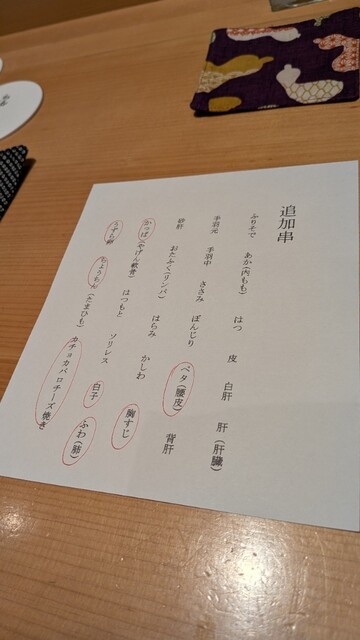 追加串
ふりそで あか(内もも) はつ 皮 白肝 肝(肝臓)
手羽元 手羽中 ささみ ぼんじり ペタ(腰皮) 背肝
砂肝 おたふく(リンパ) はらみ かしわ 胸すじ
かっぱ(やげん軟骨) はつもと ソリレス 白子 ふわ(肺)
うずら卵 ちょうちん(たまひも) カチョカバロチーズ焼き